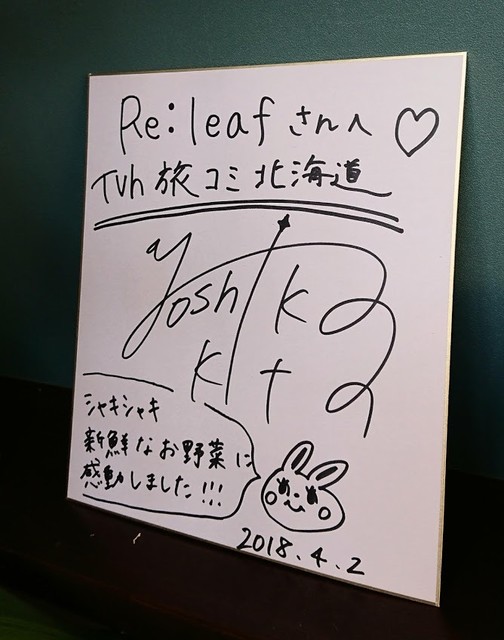 Re:leaf さんへ ♡
TVh 旅コミ北海道
Yoshika
Kita
シャキシャキ
新鮮なお野菜に
感動しました!!!
2018.4.2